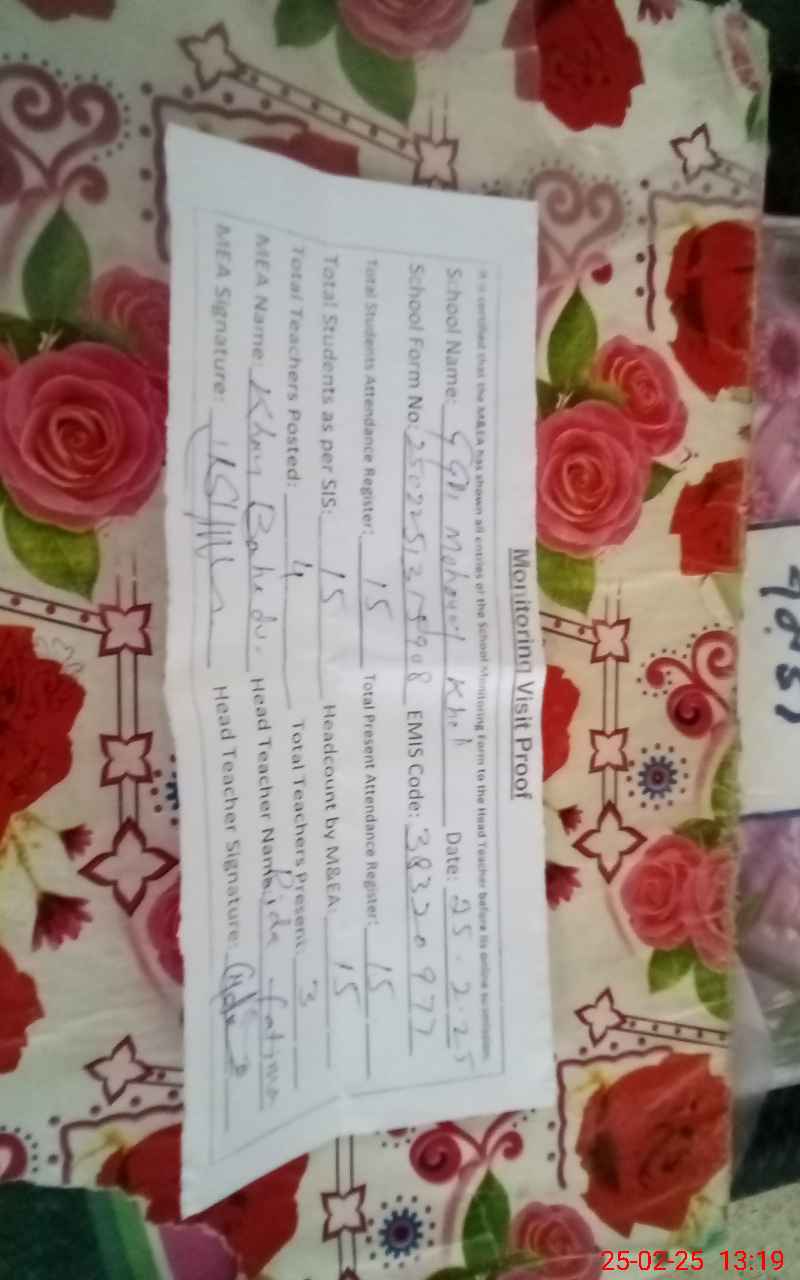 Monitoring Visit Proof
It is certified that the M&EA has shown all entries of the School Monitoring Form to the Head Teacher before its online submission
School Name: Khel Date: 25.2.25
School Form No: EMIS Code: 38320977
Total Students Attendance Register: 15 Total Present Attendance Register: 15
Total Students as per SIS: 15 Headcount by M&EA: 15
Total Teachers Posted: 4 Total Teachers Present: 3
MEA Name: Khan Bahadur Head Teacher Name: Rida Fatima
MEA Signature: Head Teacher Signature:
25-02-25 13:19